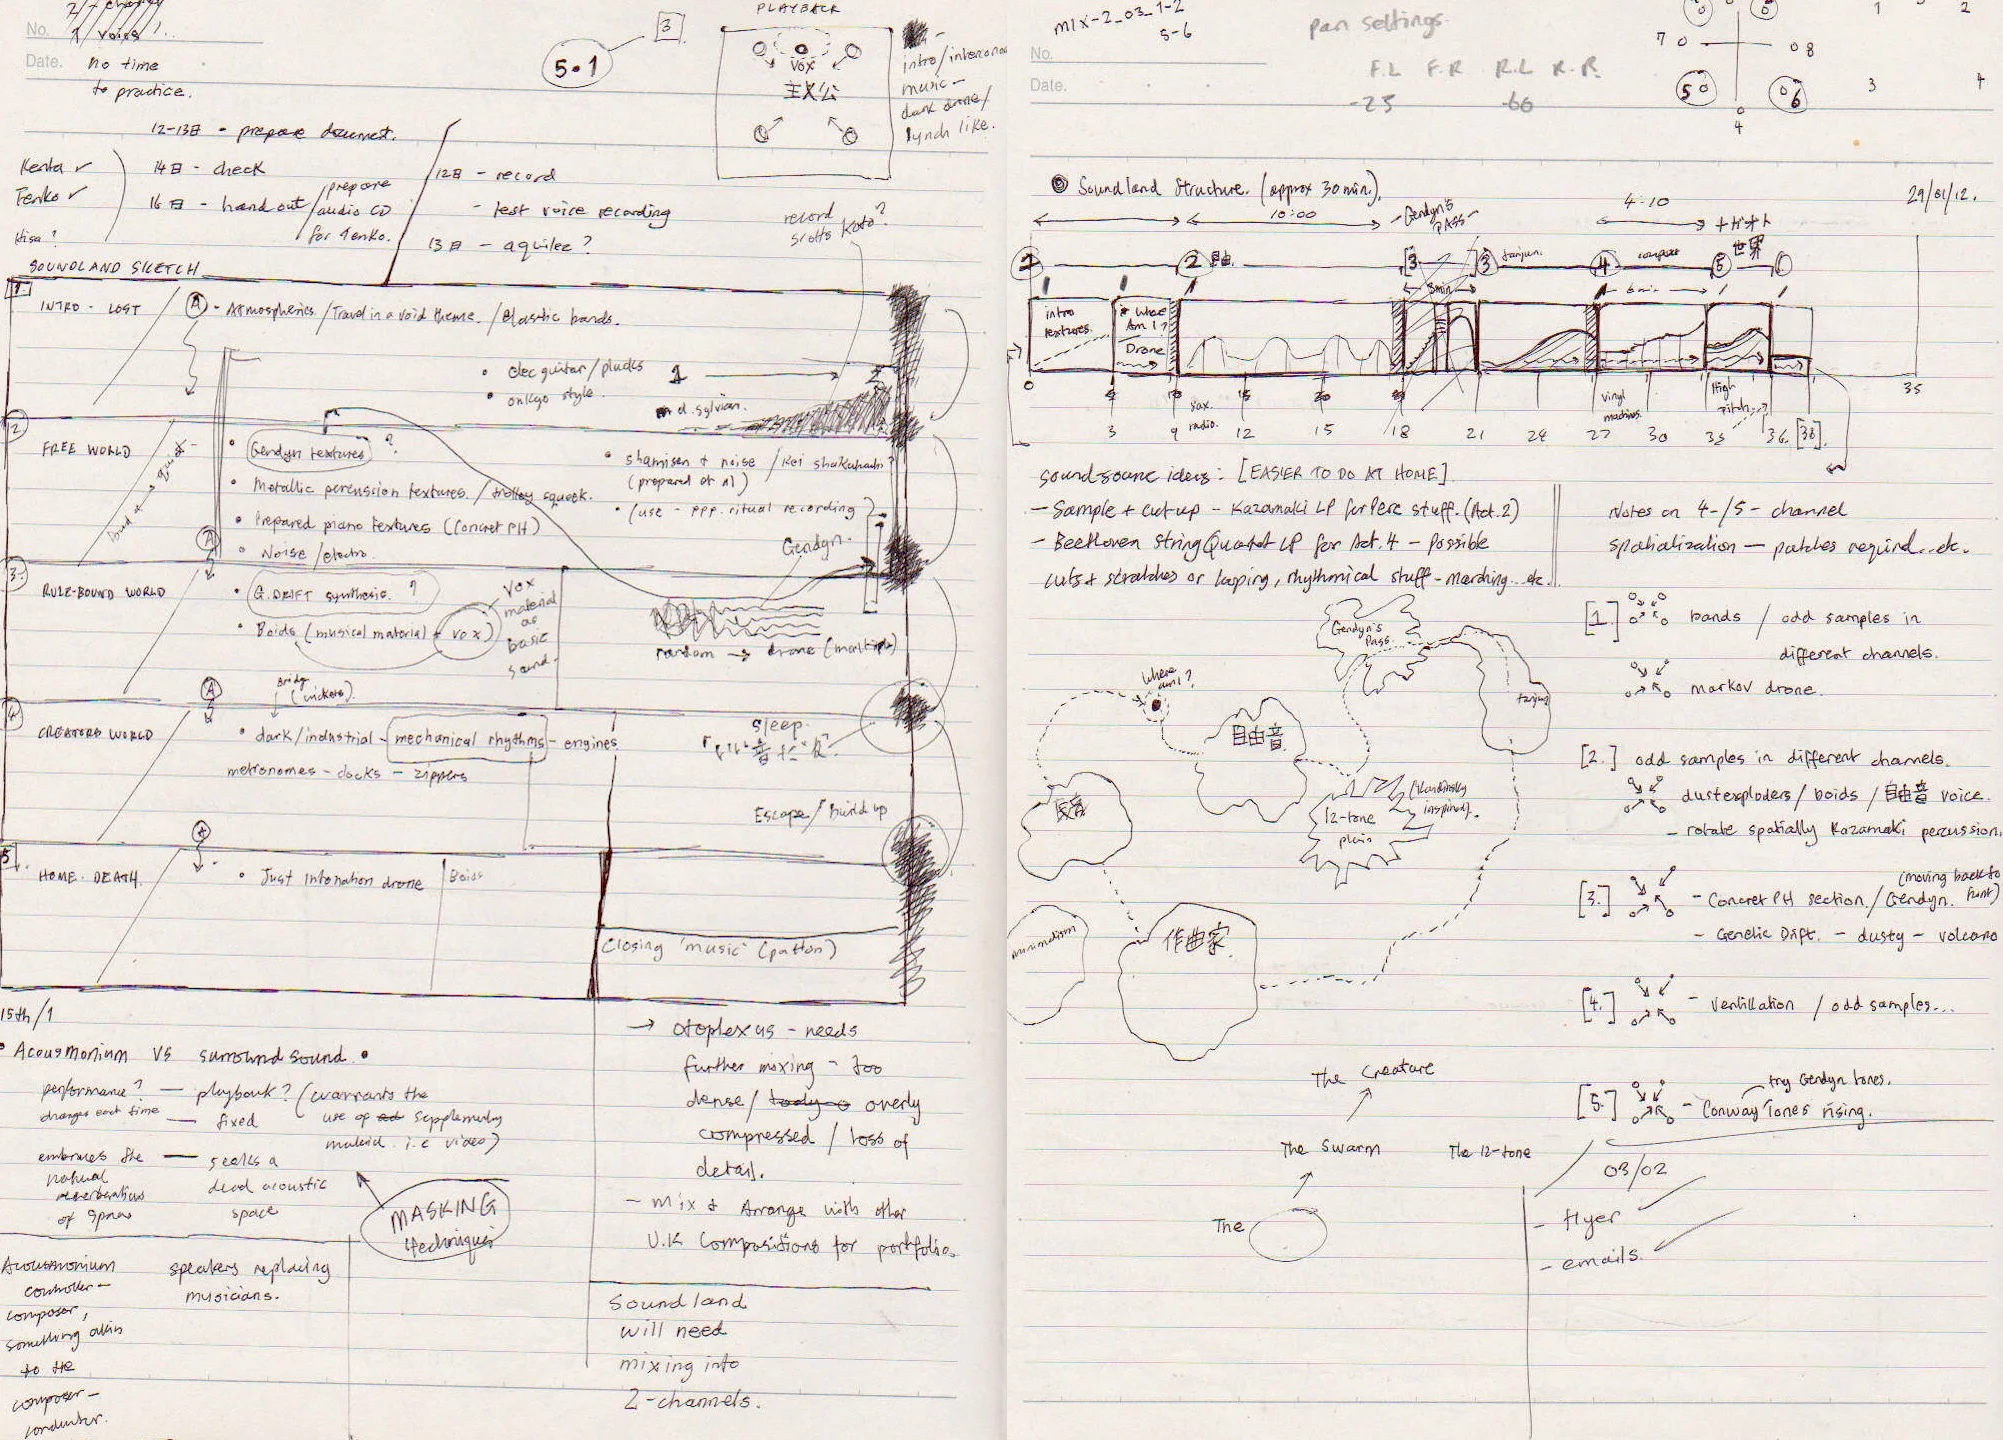 no time
to practice.
No.
Date.
5.1
3
PLAYBACK
VOX
主人公
intro/
music —
dark drone/
lynch like.
12-13日 - prepare document.
Kenta ✓
Tenko ✓
Hisa?
14日 - check
16日 - hand out / prepare audio CD for Tenko.
12日 - record
- test voice recording
13日 - aquilee?
record
Koto?
SOUNDLAND SKETCH
1
INTRO - LOST
A - Atmospherics. / Travel in a void theme. / Elastic bands.
• elec guitar / plucks
• onkyo style.
1
d. sylvian.
2
FREE WORLD
• Gendyn textures ?
• Metallic percussion textures. / trolley squeak.
• Prepared piano textures (Concret PH)
• Noise / electro.
• shamisen + noise / Kei shakuhachi?
• (use - ppp. ritual recording)
Gendyn.
A
3
RULE-BOUND WORLD
• G.DRIFT synthesis. ?
• Boids (musical material + vox)
VOX
material
as
basic
sound.
random → drone (multiple)
A
4
CREATORS WORLD
Bridge
• dark/industrial - mechanical rhythms - engines
metronomes - clocks - zippers
Sleep.
Escape / build up
A
5.
HOME. DEATH.
• Just Intonation drone
Boids
Closing 'music' (patton)
15th/1
• Acousmonium vs surround sound. •
performance? — playback? (warrants the
changes each time — fixed
use of supplementary
material. i.e video)
embraces the — seeks a
natural dead acoustic
reverberations space
of space
MASKING
techniques
Acousmonium
controller -
composer,
something akin
to the
composer -
conductor.
speakers replacing
musicians.
→ otoplexus - needs
further mixing - too
dense / overly
compressed / loss of
detail.
- mix + Arrange with other
U.K Compositions for portfolio.
Soundland
will need
mixing into
2-channels.
mix-2_03_1-2
5-6
No.
Date.
pan settings.
F.L F.R R.L R.R.
-25 -60
7 8
5 6
4
1 2
3 4
Soundland Structure. (approx 30 min.).
29/01/12.
10:00
Gendyn's
PASS
4:10
2 自由.
3
3
tanjun.
4
5
世界
3min
6min
intro
textures.
* Where
Am I?
Drone
0 15 35
sax.
radio.
vinyl
machines.
High
pitch
3 9 12 15 18 21 24 27 30 33 36. [38].
sound-source ideas: [EASIER TO DO AT HOME].
- Sample + cut up - Kazamaki LP for Perc stuff. (Act. 2)
- Beethoven String Quartet LP for Act. 4 - Possible
cuts + scratches or looping, rhythmical stuff - marching...etc.
Notes on 4-/5- channel
spatialization — patches required...etc.
[1.] bands / odd samples in
different channels.
markov drone.
[2.] odd samples in different channels.
dustexploders / boids / 自由音 voice.
- rotate spatially Kazamaki percussion.
[3.] - Concret PH section. / Gendyn. (moving back to front)
- Genetic Drift. - dusty - volcano
[4.] - Ventillation / odd samples...
[5.] - Conway Tones rising.
try Gendyn tones.
Gendyn's
Pass.
Where
am I?
tanjun
自由音
12-tone
plain
(Kandinsky
inspired).
minimalism
作曲家
The Creature
The Swarm
The 12-tone
The
03/02
- flyer
- emails.